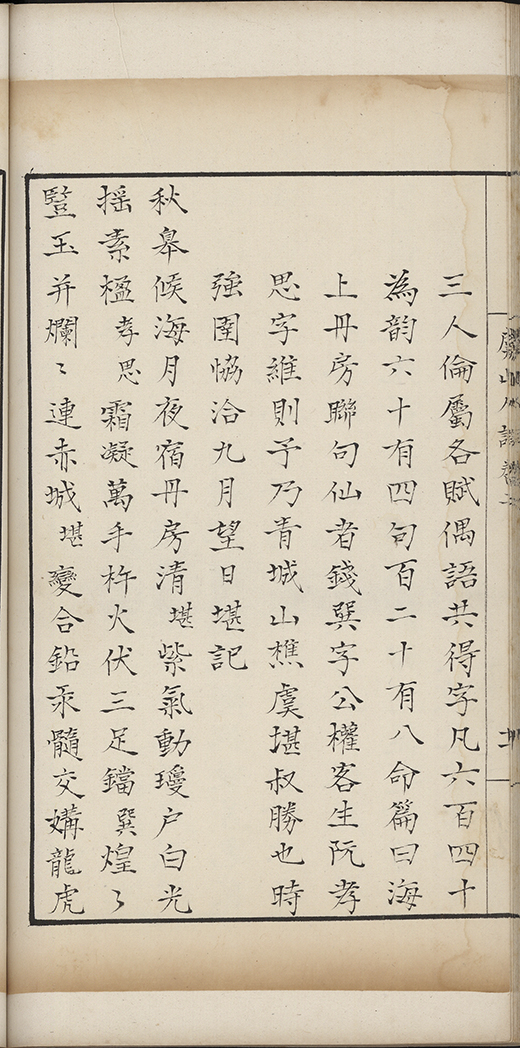 三人倫屬各賦偶語共得字凡六百四十
為韵六十有四句百二十有八命篇曰海
上丹房聯句仙者錢巽字公權客生阮孝
思字維則予乃青城山樵虞堪叔勝也時
強圉恊洽九月望日堪記
秋皋候海月夜宿丹房清堪紫氣動瓊户白光
揺素楹孝思霜凝萬手杵火伏三足鐺巽煌〻
豎玉并爛〻連赤城堪變合鉛汞髓交媾龍虎